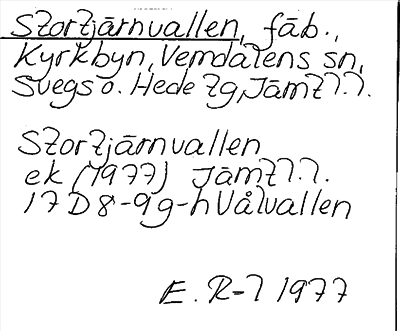 Stortjärnvallen, fäb.,
Kyrkbyn, Vemdalens sn,
Svegs o. Hede tg, Jämtl.l.
Stortjärnvallen
ek (1977) Jämtl.l.
17D 8-9g-h Vålvallen
E. R-l 1977